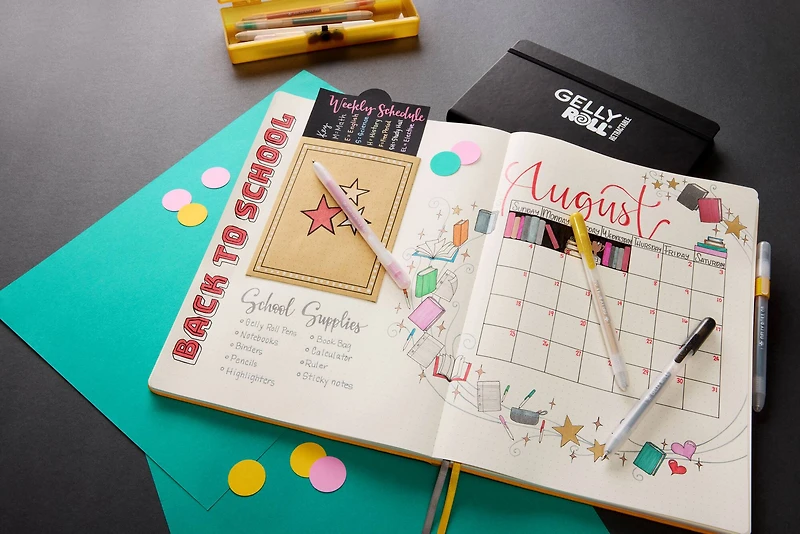 Weekly Schedule
Key
M=Math
E=English
S=Science
H=History
F=Free Period
SH=Study Hall
EL=Elective
BACK TO SCHOOL
School Supplies
Gelly Roll Pens
Notebooks
Binders
Pencils
Highlighters
Book Bag
Calculator
Ruler
Sticky notes
GELLY
ROLL
RETRACTABLE
August
Sunday Monday Wednesday Thursday Friday Saturday